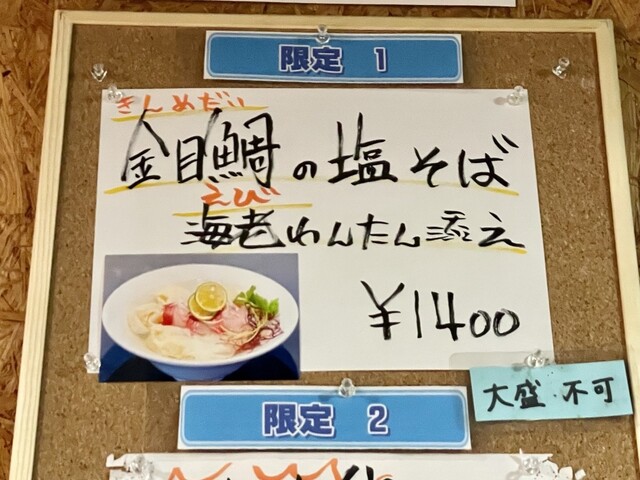 限定 1
きんめだい
金目鯛の塩そば
えび
海老わんたん添え
¥1400
大盛 不可
限定 2